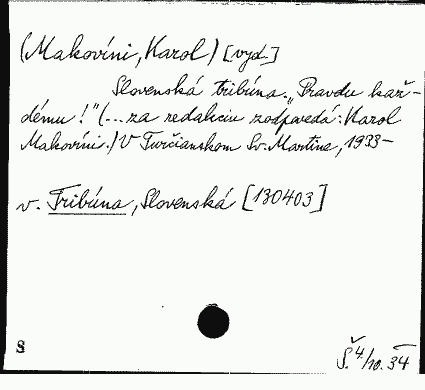 (Makovíni, Karol) [vyd.]
Slovenská tribúna. „Pravdu kaž-
dému!" (... za redakciu zodpovedá: Karol
Makovíni.) V Turčianskom Sv. Martine, 1933-
v. Tribúna, Slovenská [130403]
S
Š. 4/10. 34